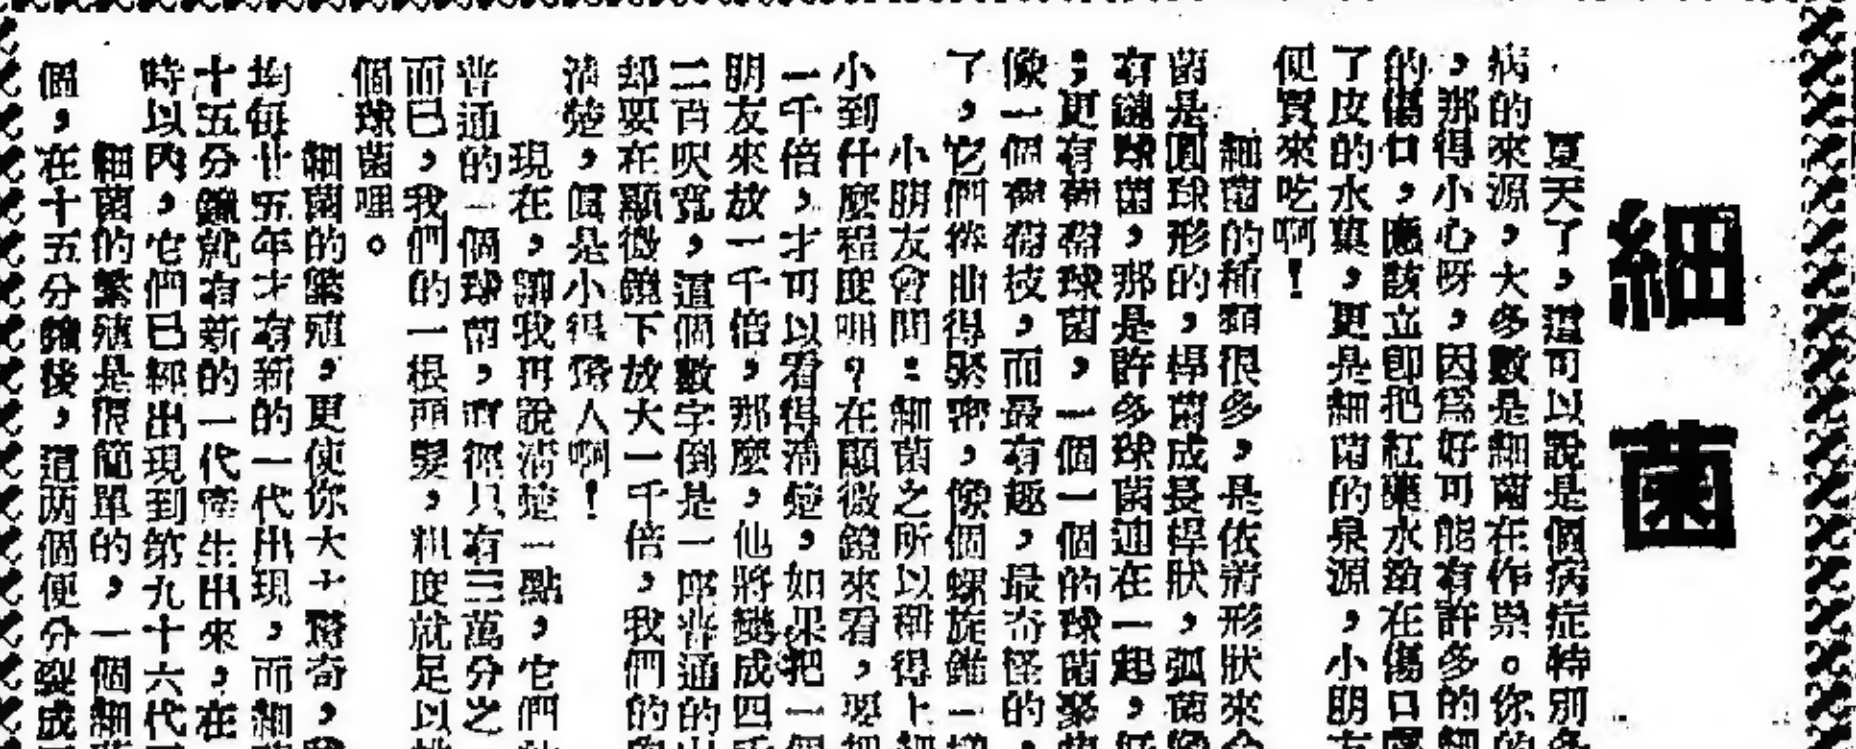 細菌
夏天了，這可以說是個病症特別多
病的來源，大多數是細菌在作祟。你的
，那得小心呀，因為好可能有許多的細
的傷口，應該立即把紅藥水敷在傷口
了皮的水菓，更是細菌的泉源，小朋友
便買來吃啊！
細菌的種類很多，是依着形狀來分
菌是圓球形的，桿菌成長桿狀，弧菌像
有鏈球菌，那是許多球菌連在一起，
；更有葡萄球菌，一個一個的球菌聚
像一個葡萄枝，而最有趣，最奇怪的，
了，它們捲曲得緊密，像個螺旋錐一樣
小朋友會問：細菌之所以稱得上細
小到什麼程度呢？在顯微鏡來看，要把
一千倍，才可以看得清楚，如果把一個
朋友來放一千倍，那麼，他將變成四千
二百呎寬，這個數字倒是一座普通的山
却要在顯微鏡下放大一千倍，我們的
清楚，眞是小得驚人啊！
現在，讓我再說清楚一點，它們
普通的一個球菌，直徑只有三萬分之
而已，我們的一根頭髮，粗度就足以
個球菌哩。
細菌的繁殖，更使你大大驚奇，
均每廿五年才有新的一代出現，而細
十五分鐘就有新的一代產生出來，在
時以內，它們已經出現到第九十六代
細菌的繁殖是很簡單的，一個細菌
個，在十五分鐘後，這两個便分裂成